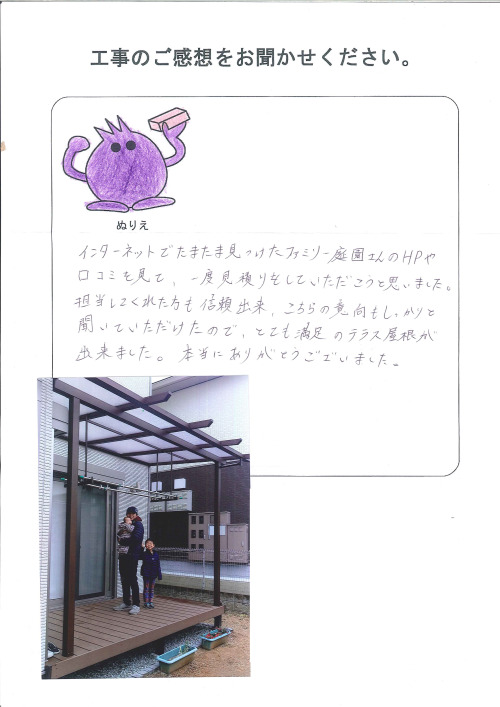 工事のご感想をお聞かせください。
ぬりえ
インターネットでたまたま見つけたファミリー庭園さんのHPや
口コミを見て、一度見積りをしていただこうと思いました。
担当してくれた方も信頼出来、こちらの意向もしっかりと
聞いていただけたので、とても満足のテラス屋根が
出来ました。本当にありがとうございました。